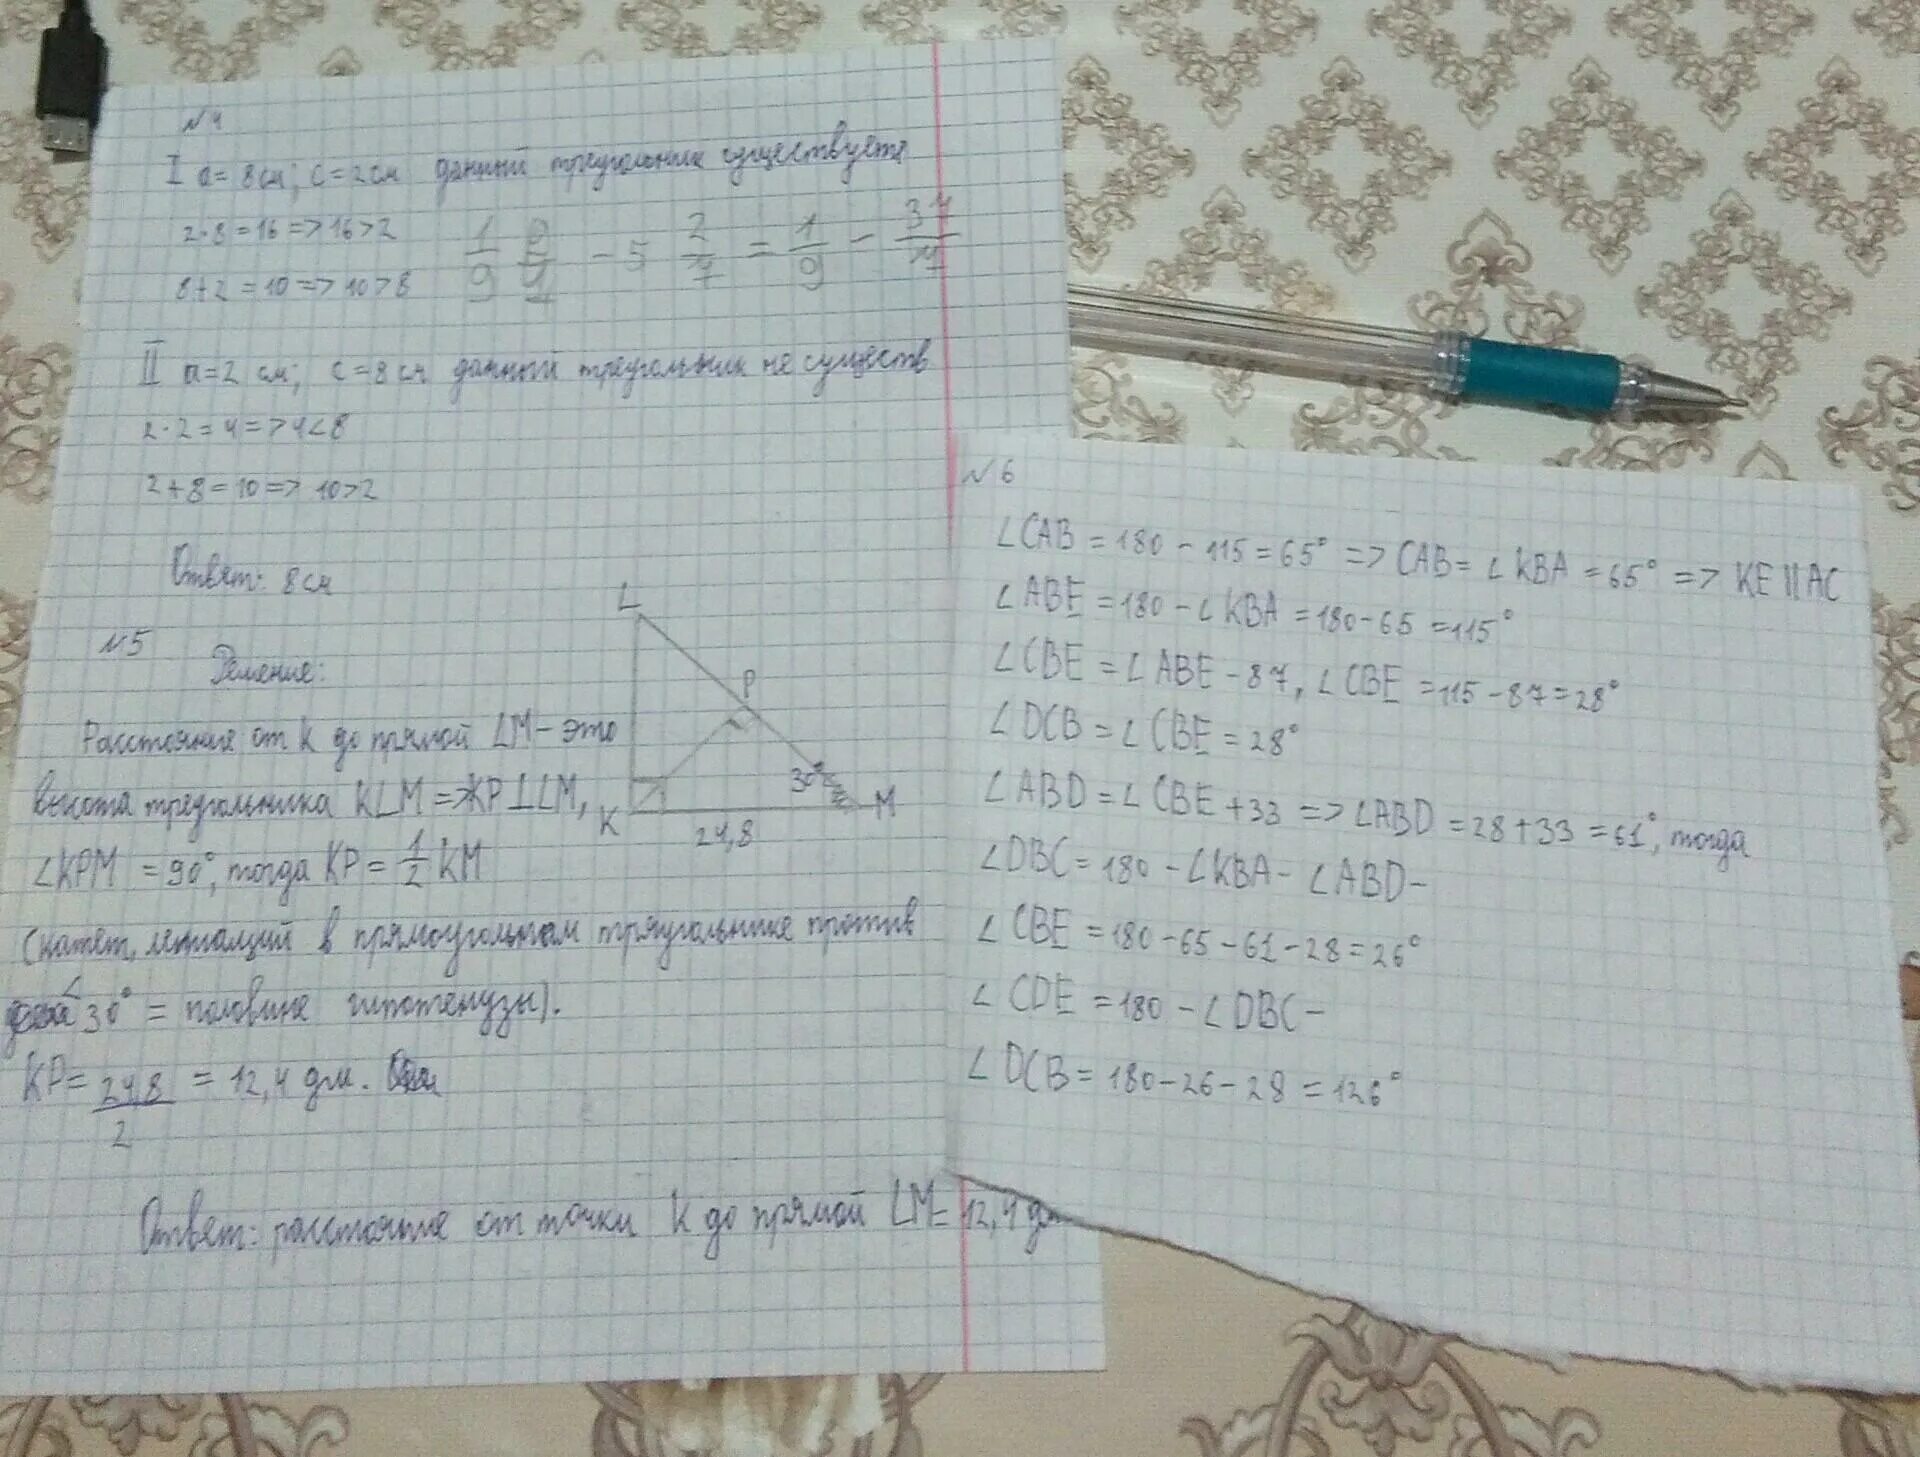 №4
I a= 8см; c=2см данный треугольник существует
2·8=16=>16>2
8+2=10=>10>8
1/9 - 5 2/7 = 1/9 - 37/7
II a=2 см; c=8см данный треугольник не существ
2·2=4=>4<8
2+8=10=>10>2
Ответ: 8см
№5
Решение:
L
P
30°
K
M
24,8
Расстояние от K до прямой LM - это
высота треугольника KLM => KP⊥LM,
∠KPM = 90°, тогда KP = 1/2 KM
(катет, лежащий в прямоугольном треугольнике против
∠30° = половине гипотенузы).
KP= 24,8/2 = 12,4 дм.
Ответ: расстояние от точки K до прямой LM= 12,4 д
№6
∠CAB = 180 - 115 = 65° => CAB = ∠KBA = 65° => KE || AC
∠ABE = 180 - ∠KBA = 180 - 65 = 115°
∠CBE = ∠ABE - 87, ∠CBE = 115 - 87 = 28°
∠DCB = ∠CBE = 28°
∠ABD = ∠CBE + 33 => ∠ABD = 28 + 33 = 61°, тогда
∠DBC = 180 - ∠KBA - ∠ABD -
∠CBE = 180 - 65 - 61 - 28 = 26°
∠CDE = 180 - ∠DBC -
∠DCB = 180 - 26 - 28 = 126°